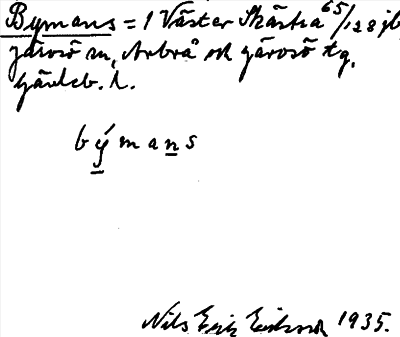 Bymans = 1 Väster Skästra 65/128 jb
Järvsö sn, Arbrå och Järvsö tg,
Gävleb. l.
býmans
Nils Erik Eriksson 1935.